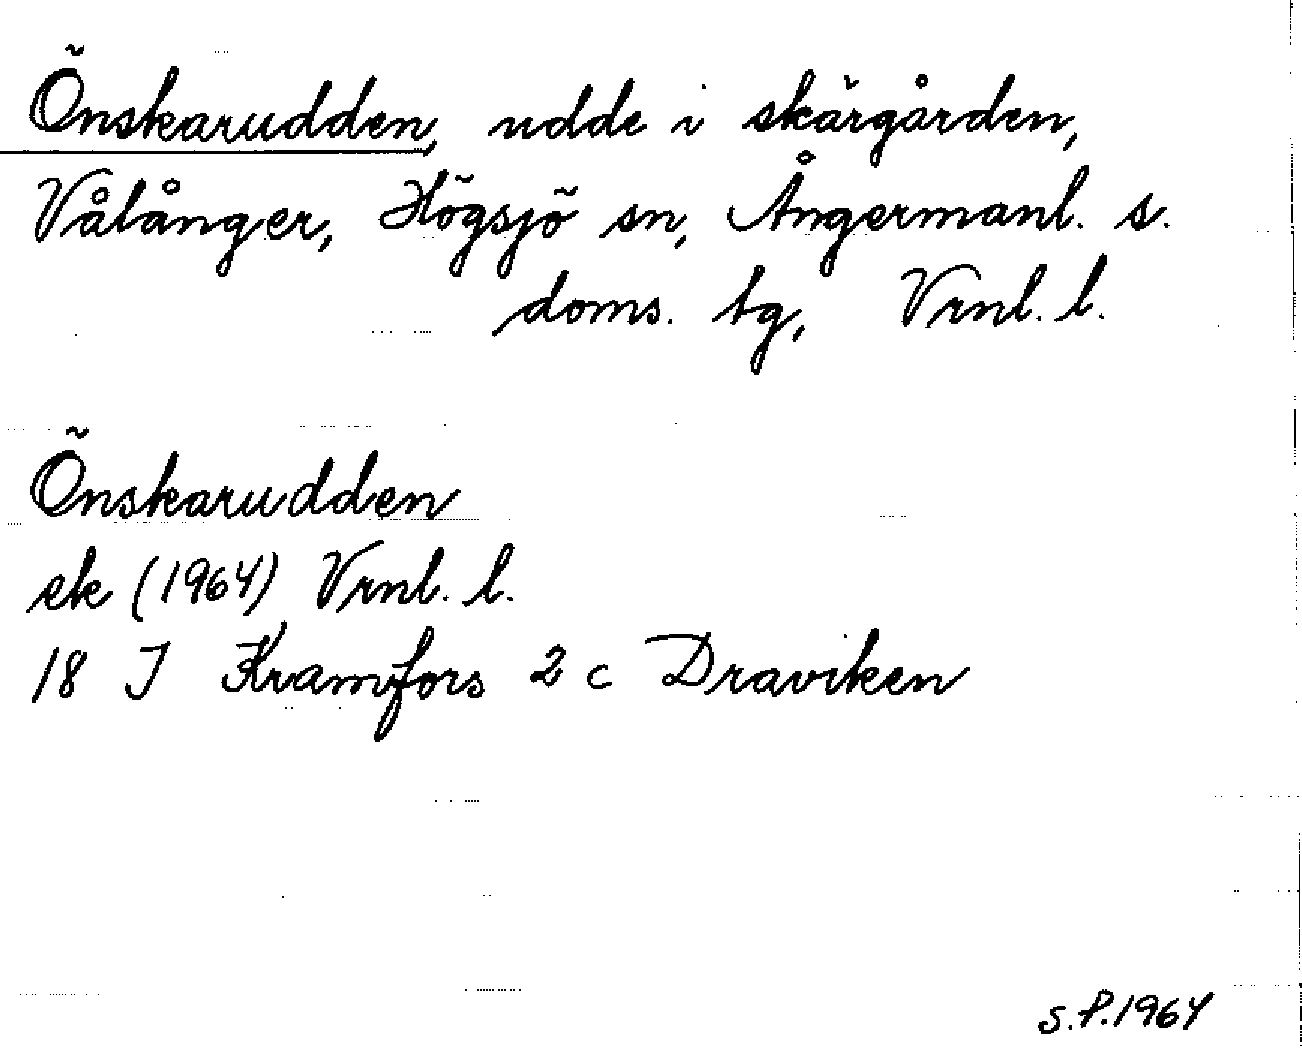 Önskarudden, udde i skärgården,
Vålånger, Högsjö sn, Ångermanl. s.
doms. tg, Vrnl. l.
Önskarudden
ek (1964) Vrnl. l.
18 I Kramfors 2 c Draviken
S.P.1964